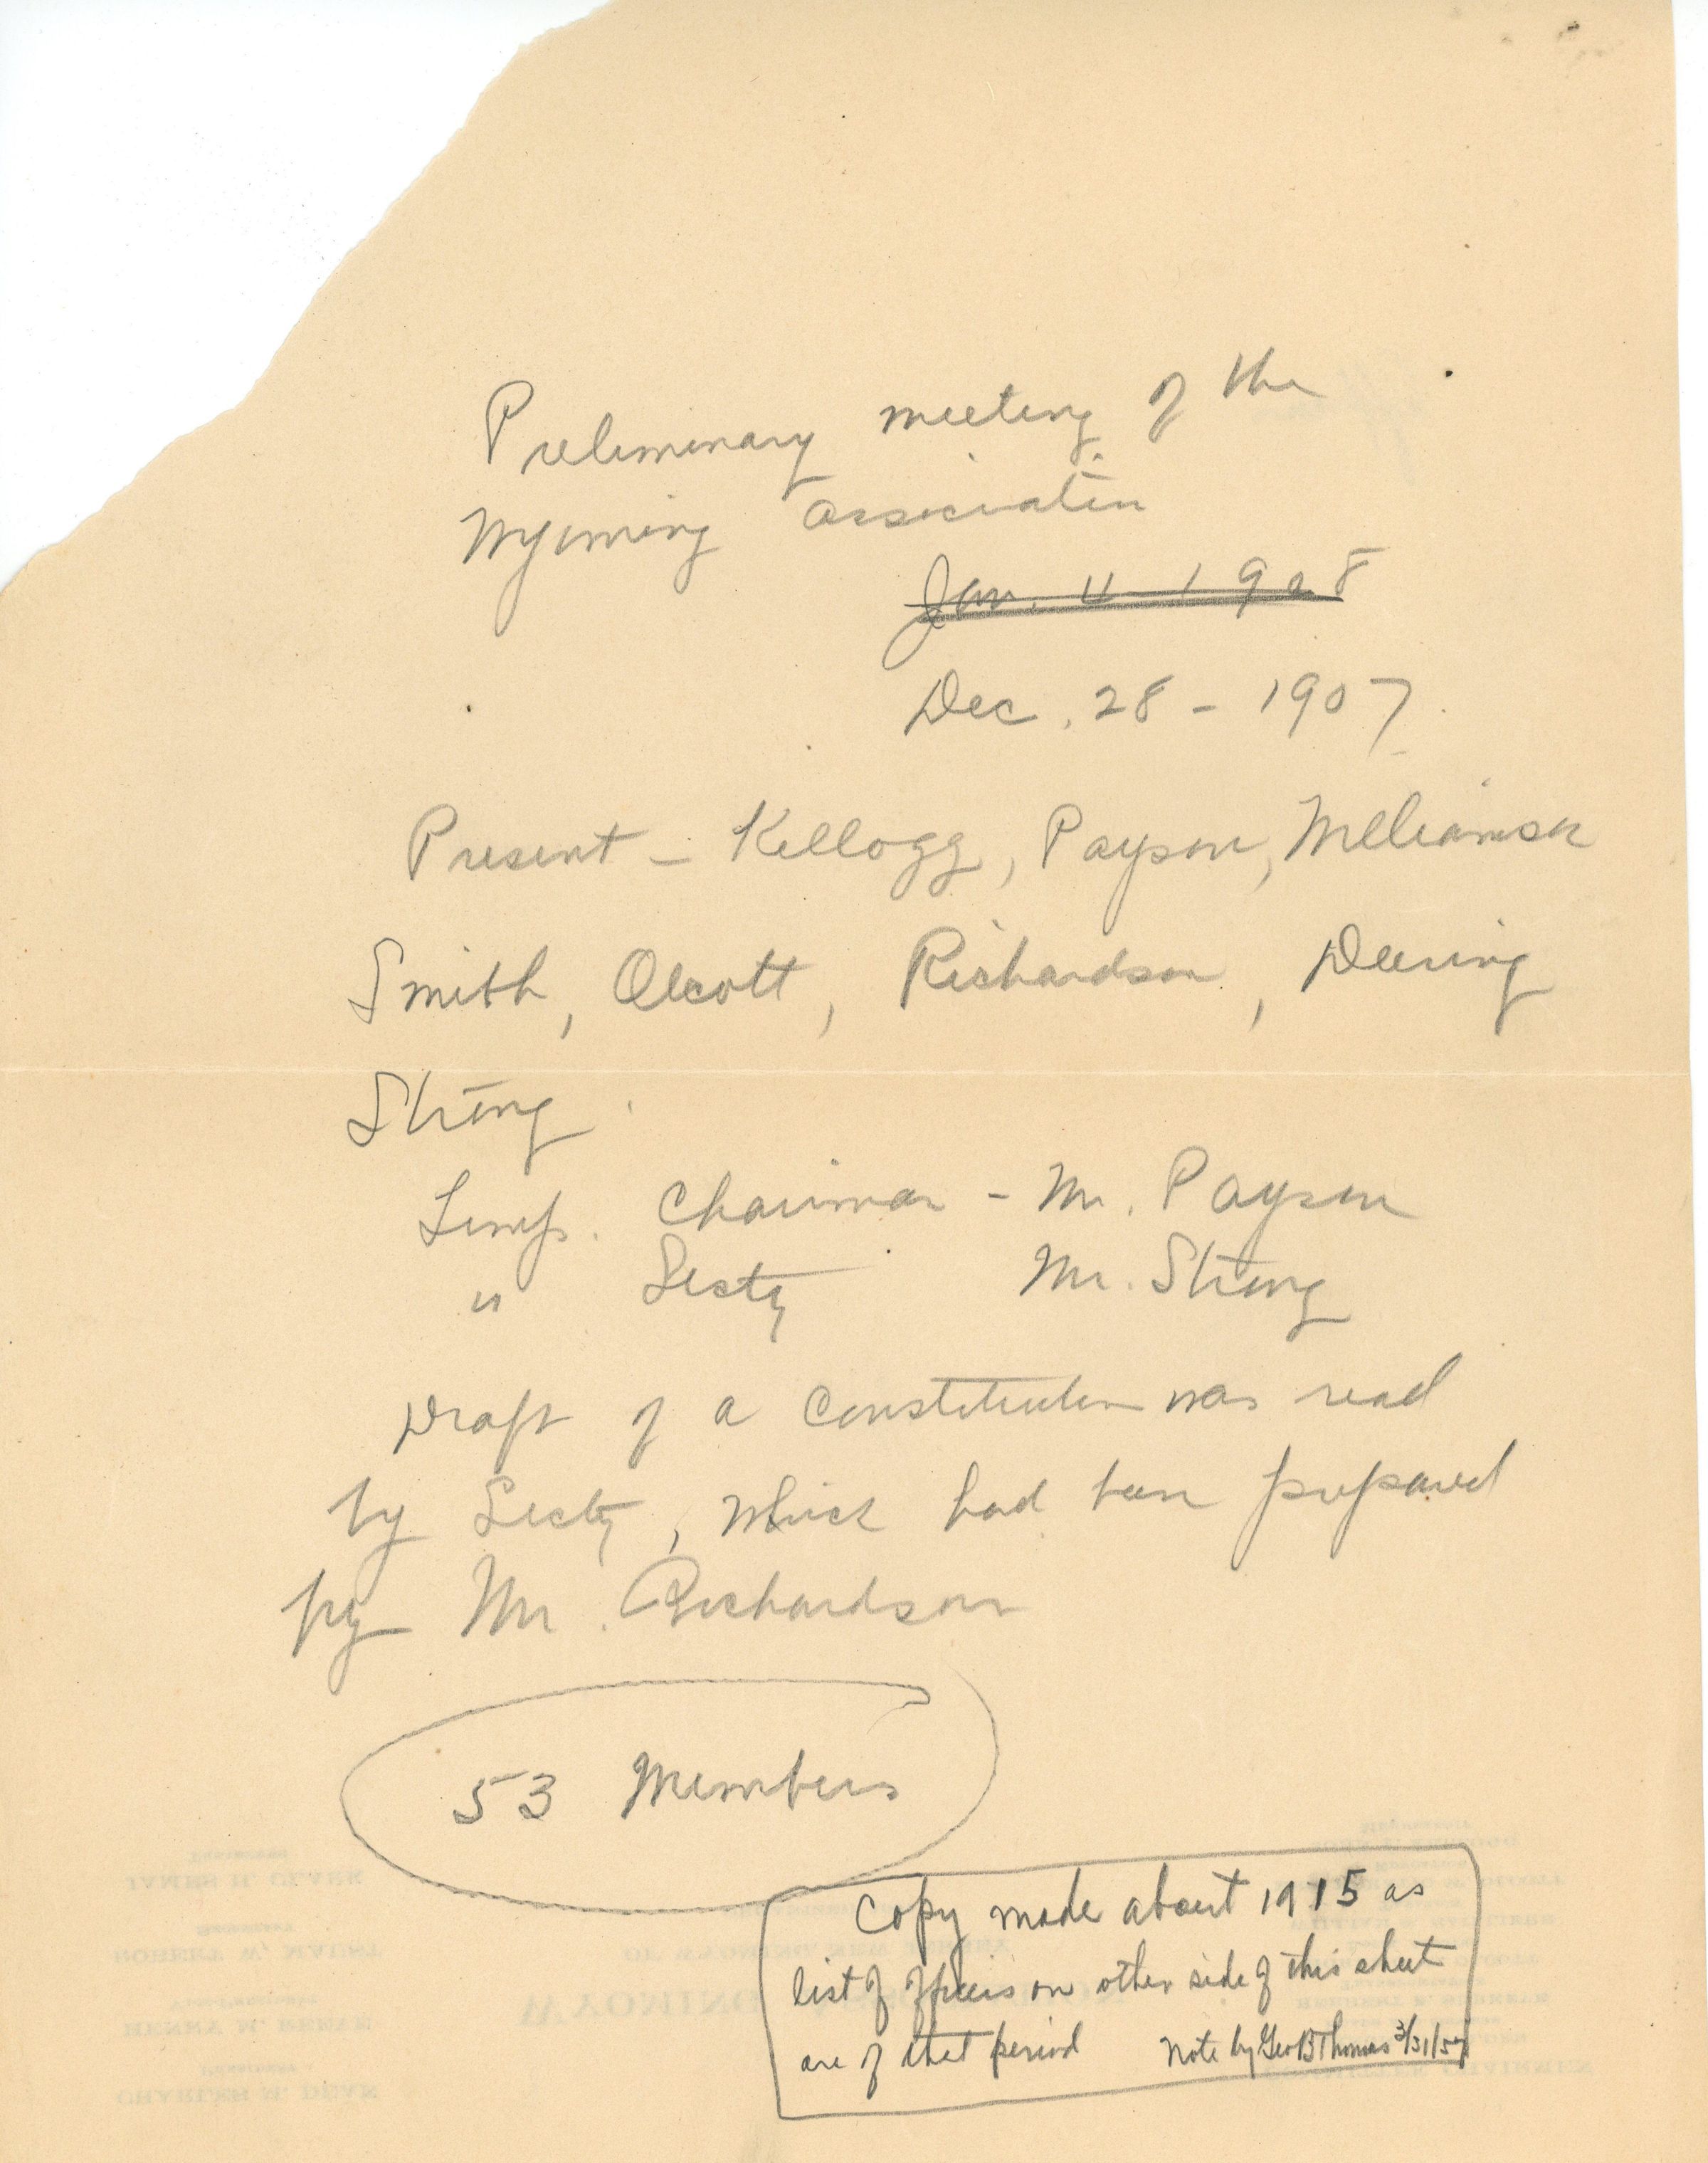 Preliminary meeting of the
Wyoming Association
Jan. 11 1908
Dec. 28 - 1907
Present - Kellogg, Payson, Williamson
Smith, Olcott, Richardson, Deering
Strong.
Temp. Chairman - Mr. Payson
" Secty Mr. Strong
Draft of a Constitution was read
by Secty, which had been prepared
by Mr. Richardson
53 Members
Copy made about 1915 as
list of officers on other side of this sheet
are of that period Note by Geo B Thomas 3/31/57